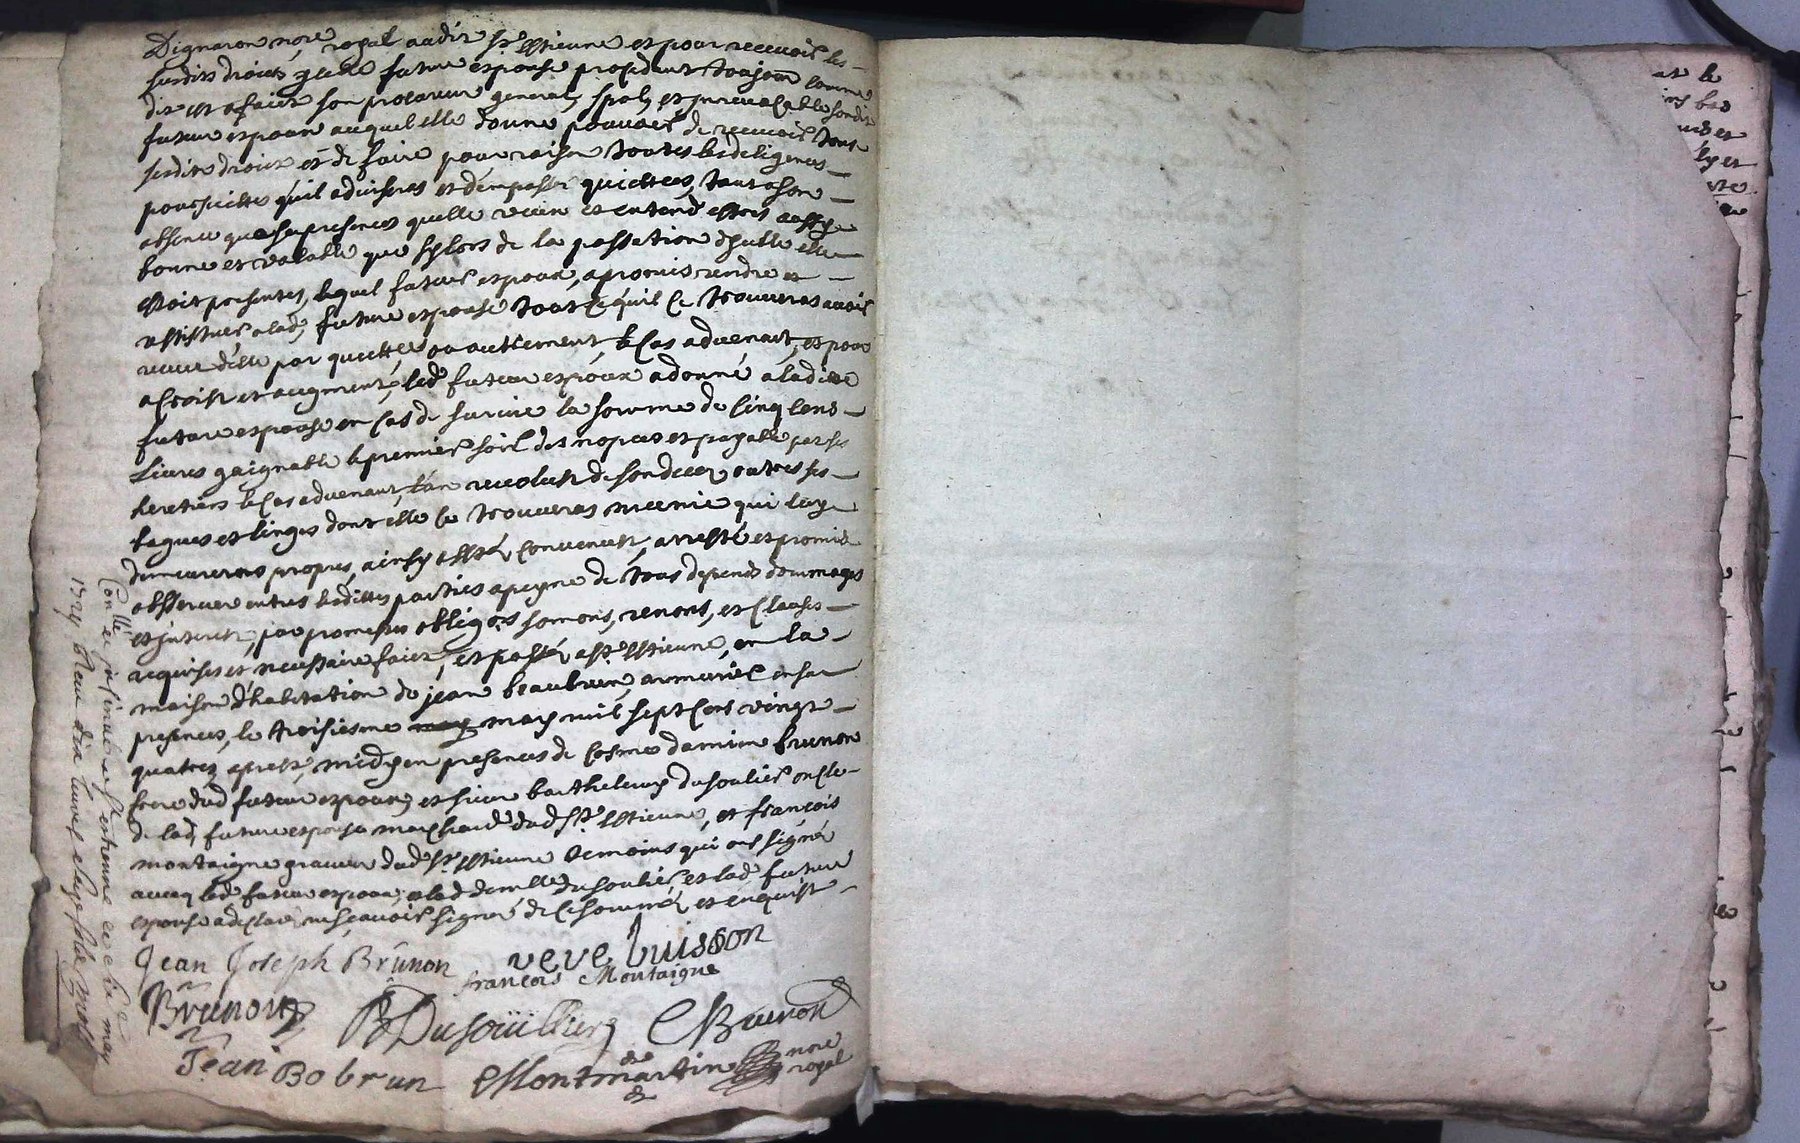 Dignaron nore royal audit St Estienne et pour recevoir les
susdits droicts lade future espouse procedant toujour comme
dit est a faict son procureur general spal et jrrevocable sondit
futeur espoux auquel elle donne pouvoir de recevoir tous
sesdits droict et de faire pour raison toutes les deligences
poursuittes quil advisera et d'em passer quittces, tant a son
absence que sa presences quelle veut et entend estres aussy
bonne et valable que sy lors de la passation dycelle elle
estoit presentes, lequel futeur espoux, a promis rendre et
restistuer a lad, future espouse tout ce quil ce trouveras avoir
receu d'elle par quittce ou autrement, le Cas advenant, et pour
acroist et augment, led futeur espoux a donné a laditte
future espouse en Cas de survie la somme de Cinq Cens
livres gaignable le premier soir des nopces et payable par ses
heretiers le Cas advenant, l'an revolut de son decez outres ses
bagues et linges dont elle ce trouveras meunie qui luy
demeureront propres, ainsy esté Convenut, arresté et promis
observer entres lesdittes parties a peyne de tous depends dommages
et jnterest, par promesses obligons somons, renons, et Clauses
requises et necessaire faict, et passé, a St Estienne, en la
maison d'habitation de jean beaubrun, armurier en sa
presences, le troisiesme may mil sept Cens vingt
quatres apres midy en presences de Cosme damien brunon
frere dud futeur espoux, et sieur barthelemy dusoulier oncle
de lad, future espouse marchand dud St Estienne, et françois
montaigne graveur dud St Estienne temoins qui ont signé
avecq led futeur espoux, a lad demlle dusoulier et lad future
espouse a declaré ne sçavoir signer de Ce sommé et enquist
Jean Joseph Brunon veve buisson
françois Montaigne
Brunon B Dusouillier C Brunon
Jean Bobrun Montmartin nore
royal
Conllé et insinué a St estienne ce 4e may
1724 Receu dix livres